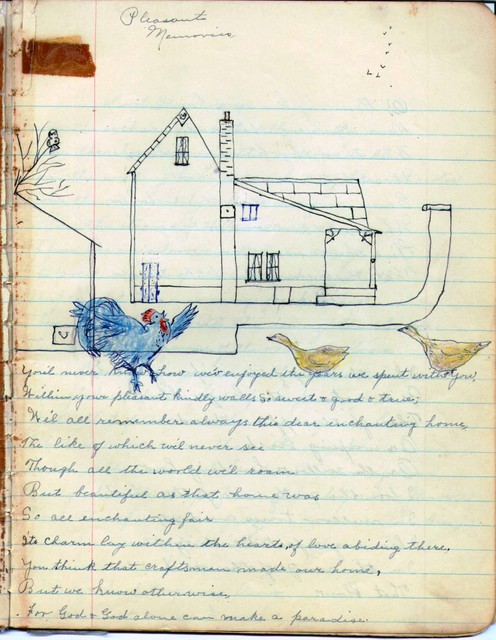 Pleasant
Memories
You'll never know how we've enjoyed the years we spent with you,
Within your pleasant kindly walls So sweet & good & true;
We'll all remember always this dear enchanting home,
The like of which we'll never see
Though all the world we'll roam
But beautiful as that home was
So all enchanting fair
Its charm lay within the hearts, of love abiding there,
You think that craftsmen made our home,
But we know otherwise,
For God & God alone can make a paradise.